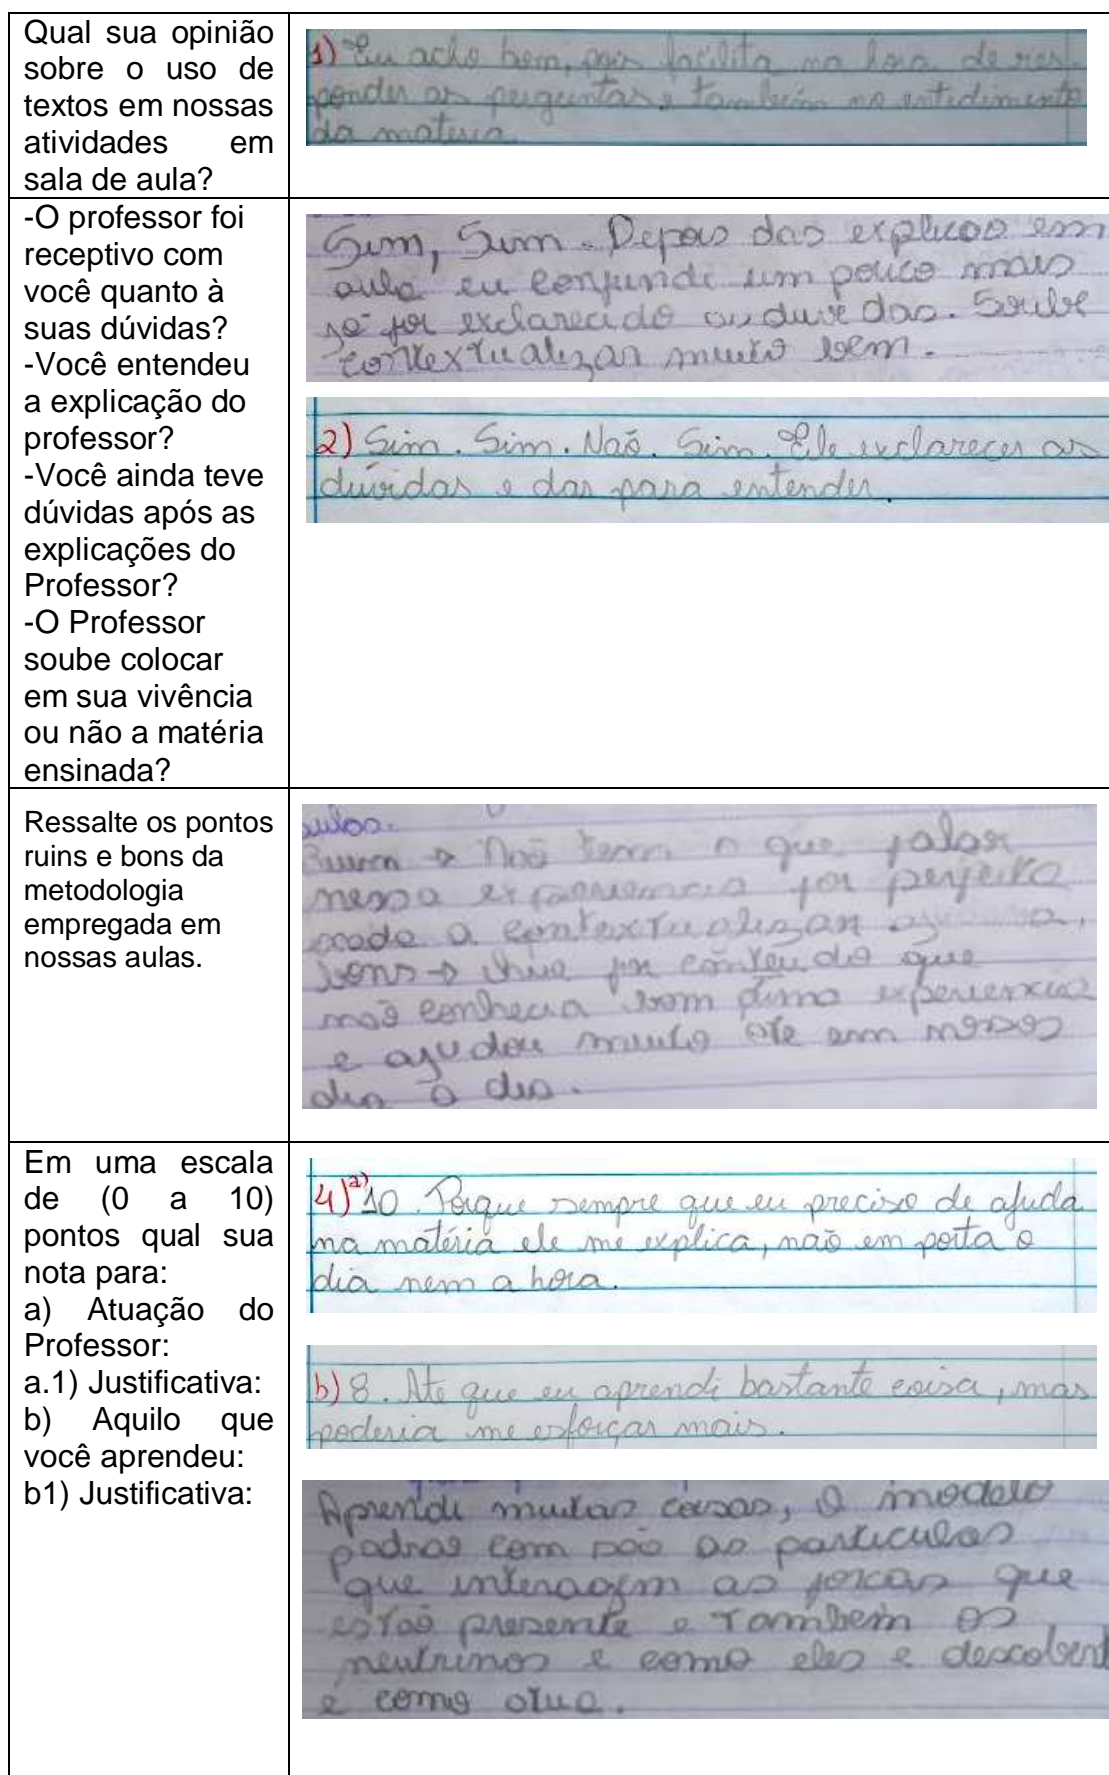 Qual sua opinião
sobre o uso de
textos em nossas
atividades em
sala de aula?
1) Eu acho bom, pois facilita na hora de res-
ponder as perguntas e também no entidimento
da materia
-O professor foi
receptivo com
você quanto à
suas dúvidas?
-Você entendeu
a explicação do
professor?
-Você ainda teve
dúvidas após as
explicações do
Professor?
-O Professor
soube colocar
em sua vivência
ou não a matéria
ensinada?
Sim, Sim. Depois das explicas em
aula eu confundi um pouco mais
foi exclarecido as duvidas. Soube
contextualizar muito bem.
2) Sim. Sim. Não. Sim. Ele exclareceu as
dúvidas e das para entender.
Ressalte os pontos
ruins e bons da
metodologia
empregada em
nossas aulas.
aulas.
Ruim → Não tem o que falar
nessa experiencia foi perfeita
a contextualizar
bons → foi conteudo que
não conhecia bom experiencia
e ajudou muito ate em nossos
dia a dia.
Em uma escala
de (0 a 10)
pontos qual sua
nota para:
a) Atuação do
Professor:
a.1) Justificativa:
b) Aquilo que
você aprendeu:
b1) Justificativa:
4) a) 10. Porque sempre que eu preciso de ajuda
na matéria ele me explica, não em porta o
dia nem a hora.
b) 8. Ate que eu aprendi bastante coisa, mas
poderia me esforçar mais.
Aprendi muitas coisas, o modelo
padrao com são as particulas
que interagem as forcas que
estão presente e também os
neutrinos e como eles e descobert
e como atua.